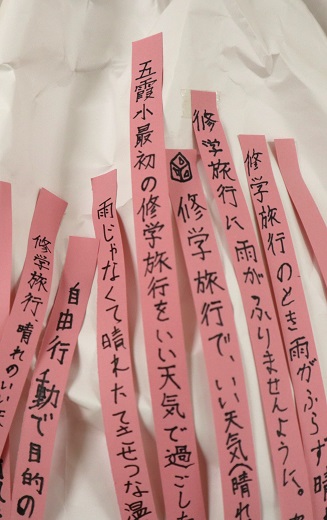 修学旅行のとき雨がふらず晴
修学旅行に雨がふりませんように。
修学旅行で、いい天気(晴れ
五霞小最初の修学旅行をいい天気で過ごし
雨じゃなくて晴れたてきせつな温
自由行動で目的の
修学旅行、晴れのいい天